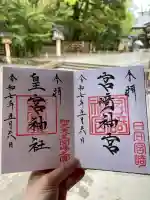 奉拝
宮崎神宮
令和七年五月六日
奉拝
皇宮神社
令和七年五月六日